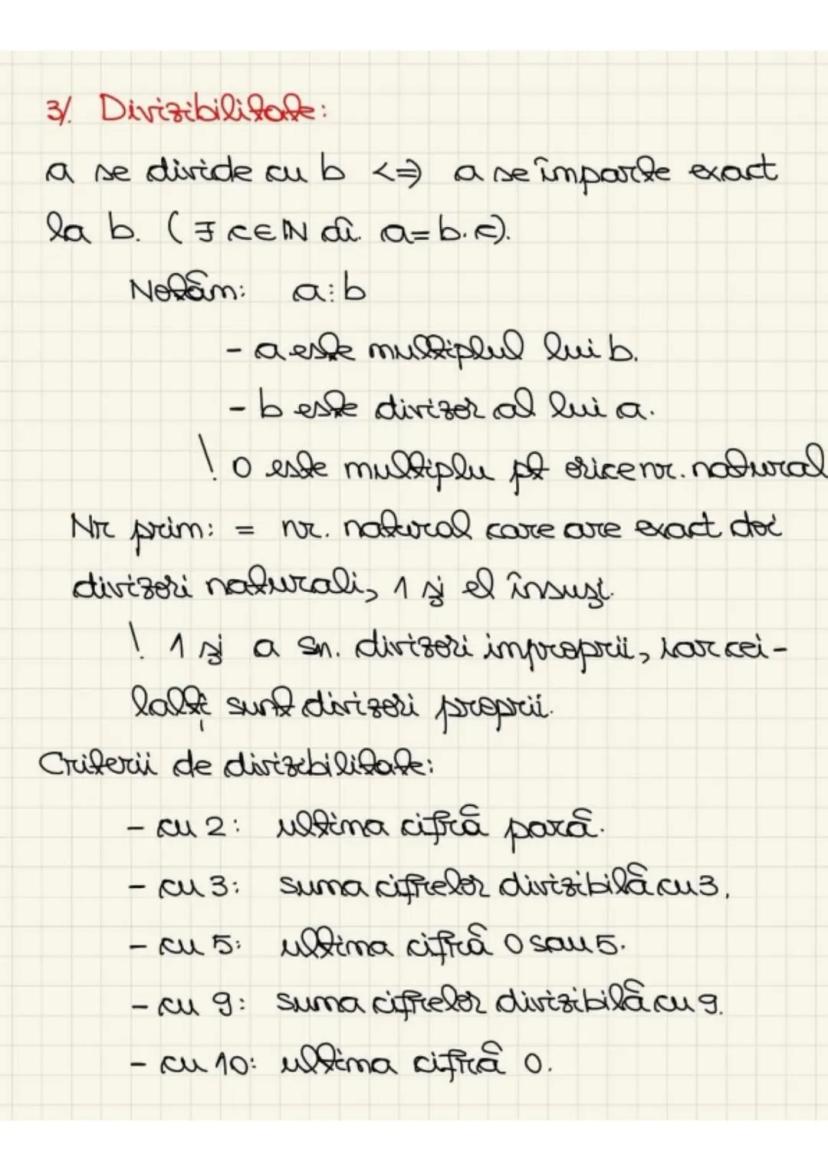 3/. Divizibilitate:
a se divide cu b <=> a se împarte exact
la b. (∃ c∈ℕ aî. a=b·c).
Notăm: a⋮b
- a este multiplul lui b.
- b este divizor al lui a.
! 0 este multiplu pt orice nr. natural
Nr prim: = nr. natural care are exact doi
divizori naturali, 1 și el însuși.
! 1 și a sn. divizori improprii, iar cei-
lalți sunt divizori proprii.
Criterii de divizibilitate:
- cu 2: ultima cifră pară.
- cu 3: suma cifrelor divizibilă cu 3.
- cu 5: ultima cifră 0 sau 5.
- cu 9: suma cifrelor divizibilă cu 9.
- cu 10: ultima cifră 0.